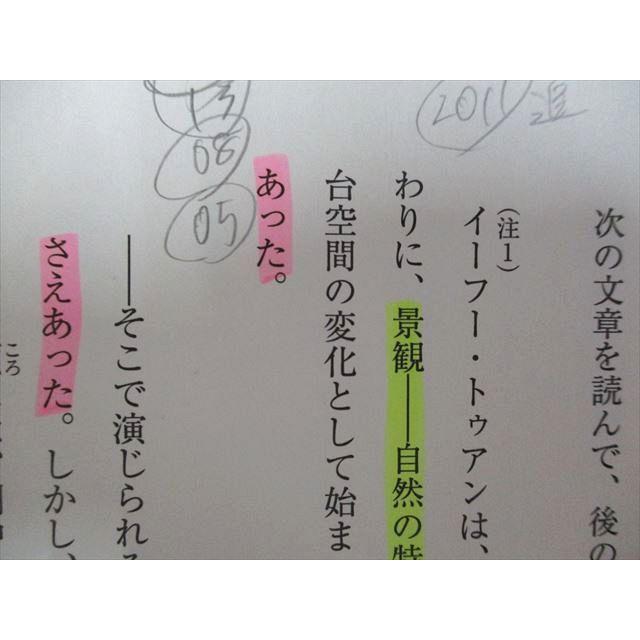 2011 追
08
05
次の文章を読んで、後の
(注1)
イーフー・トゥアンは、
わりに、景観――自然の特
台空間の変化として始ま
あった。
――そこで演じられる
さえあった。しかし、
ころ